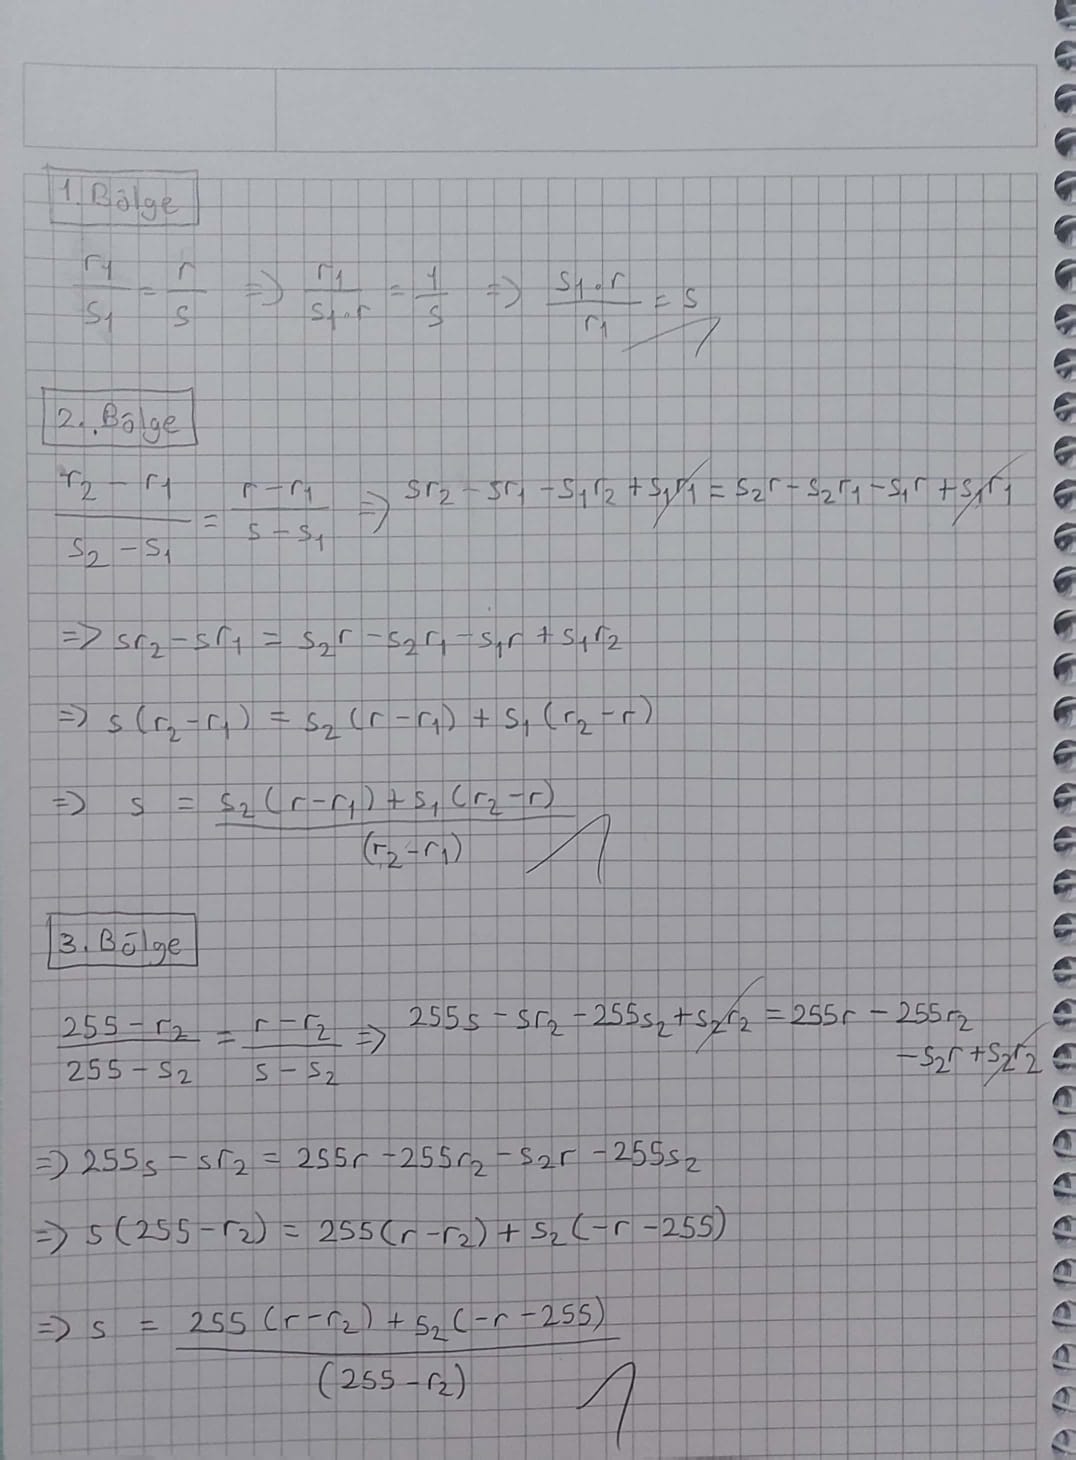 1. Bölge
r₁/s₁ = r/s ⇒ r₁/(s₁.r) = 1/s ⇒ (s₁.r)/r₁ = s
2. Bölge
(r₂ - r₁)/(s₂ - s₁) = (r - r₁)/(s - s₁) ⇒ sr₂ - sr₁ - s₁r₂ + s₁r₁ = s₂r - s₂r₁ - s₁r + s₁r₁
⇒ sr₂ - sr₁ = s₂r - s₂r₁ - s₁r + s₁r₂
⇒ s(r₂ - r₁) = s₂(r - r₁) + s₁(r₂ - r)
⇒ s = (s₂(r - r₁) + s₁(r₂ - r))/(r₂ - r₁)
3. Bölge
(255 - r₂)/(255 - s₂) = (r - r₂)/(s - s₂) ⇒ 255s - sr₂ - 255s₂ + s₂r₂ = 255r - 255r₂
- s₂r + s₂r₂
⇒ 255s - sr₂ = 255r - 255r₂ - s₂r - 255s₂
⇒ s(255 - r₂) = 255(r - r₂) + s₂(-r - 255)
⇒ s = (255(r - r₂) + s₂(-r - 255))/(255 - r₂)